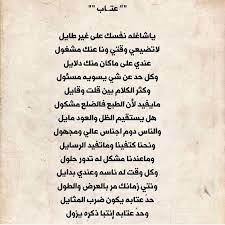 "" عتـــاب ""
ياشاغله نفسك على غير طايل
لاتضيعي وقتي ونا عنك مشغول
عندي على ماكان منك دلايل
وكل حد عن شي يسويه مسئول
وكثر الكلام بين قلت وقايل
مايفيد لأن الطبع فالضلع مشكول
هل يستقيم الظل والعود مايل
والناس دوم اجناس عالي ومجهول
ونحنا كتفينا وماتفيد الرسايل
وماعندنا مشكل له تدور حلول
وكل وقت له ناسه وعندي بدايل
ونتي زمانك مر بالعرض والطول
حد عتابه يكون ضرب المثايل
وحد عتابه إنتبا ذكره يزول